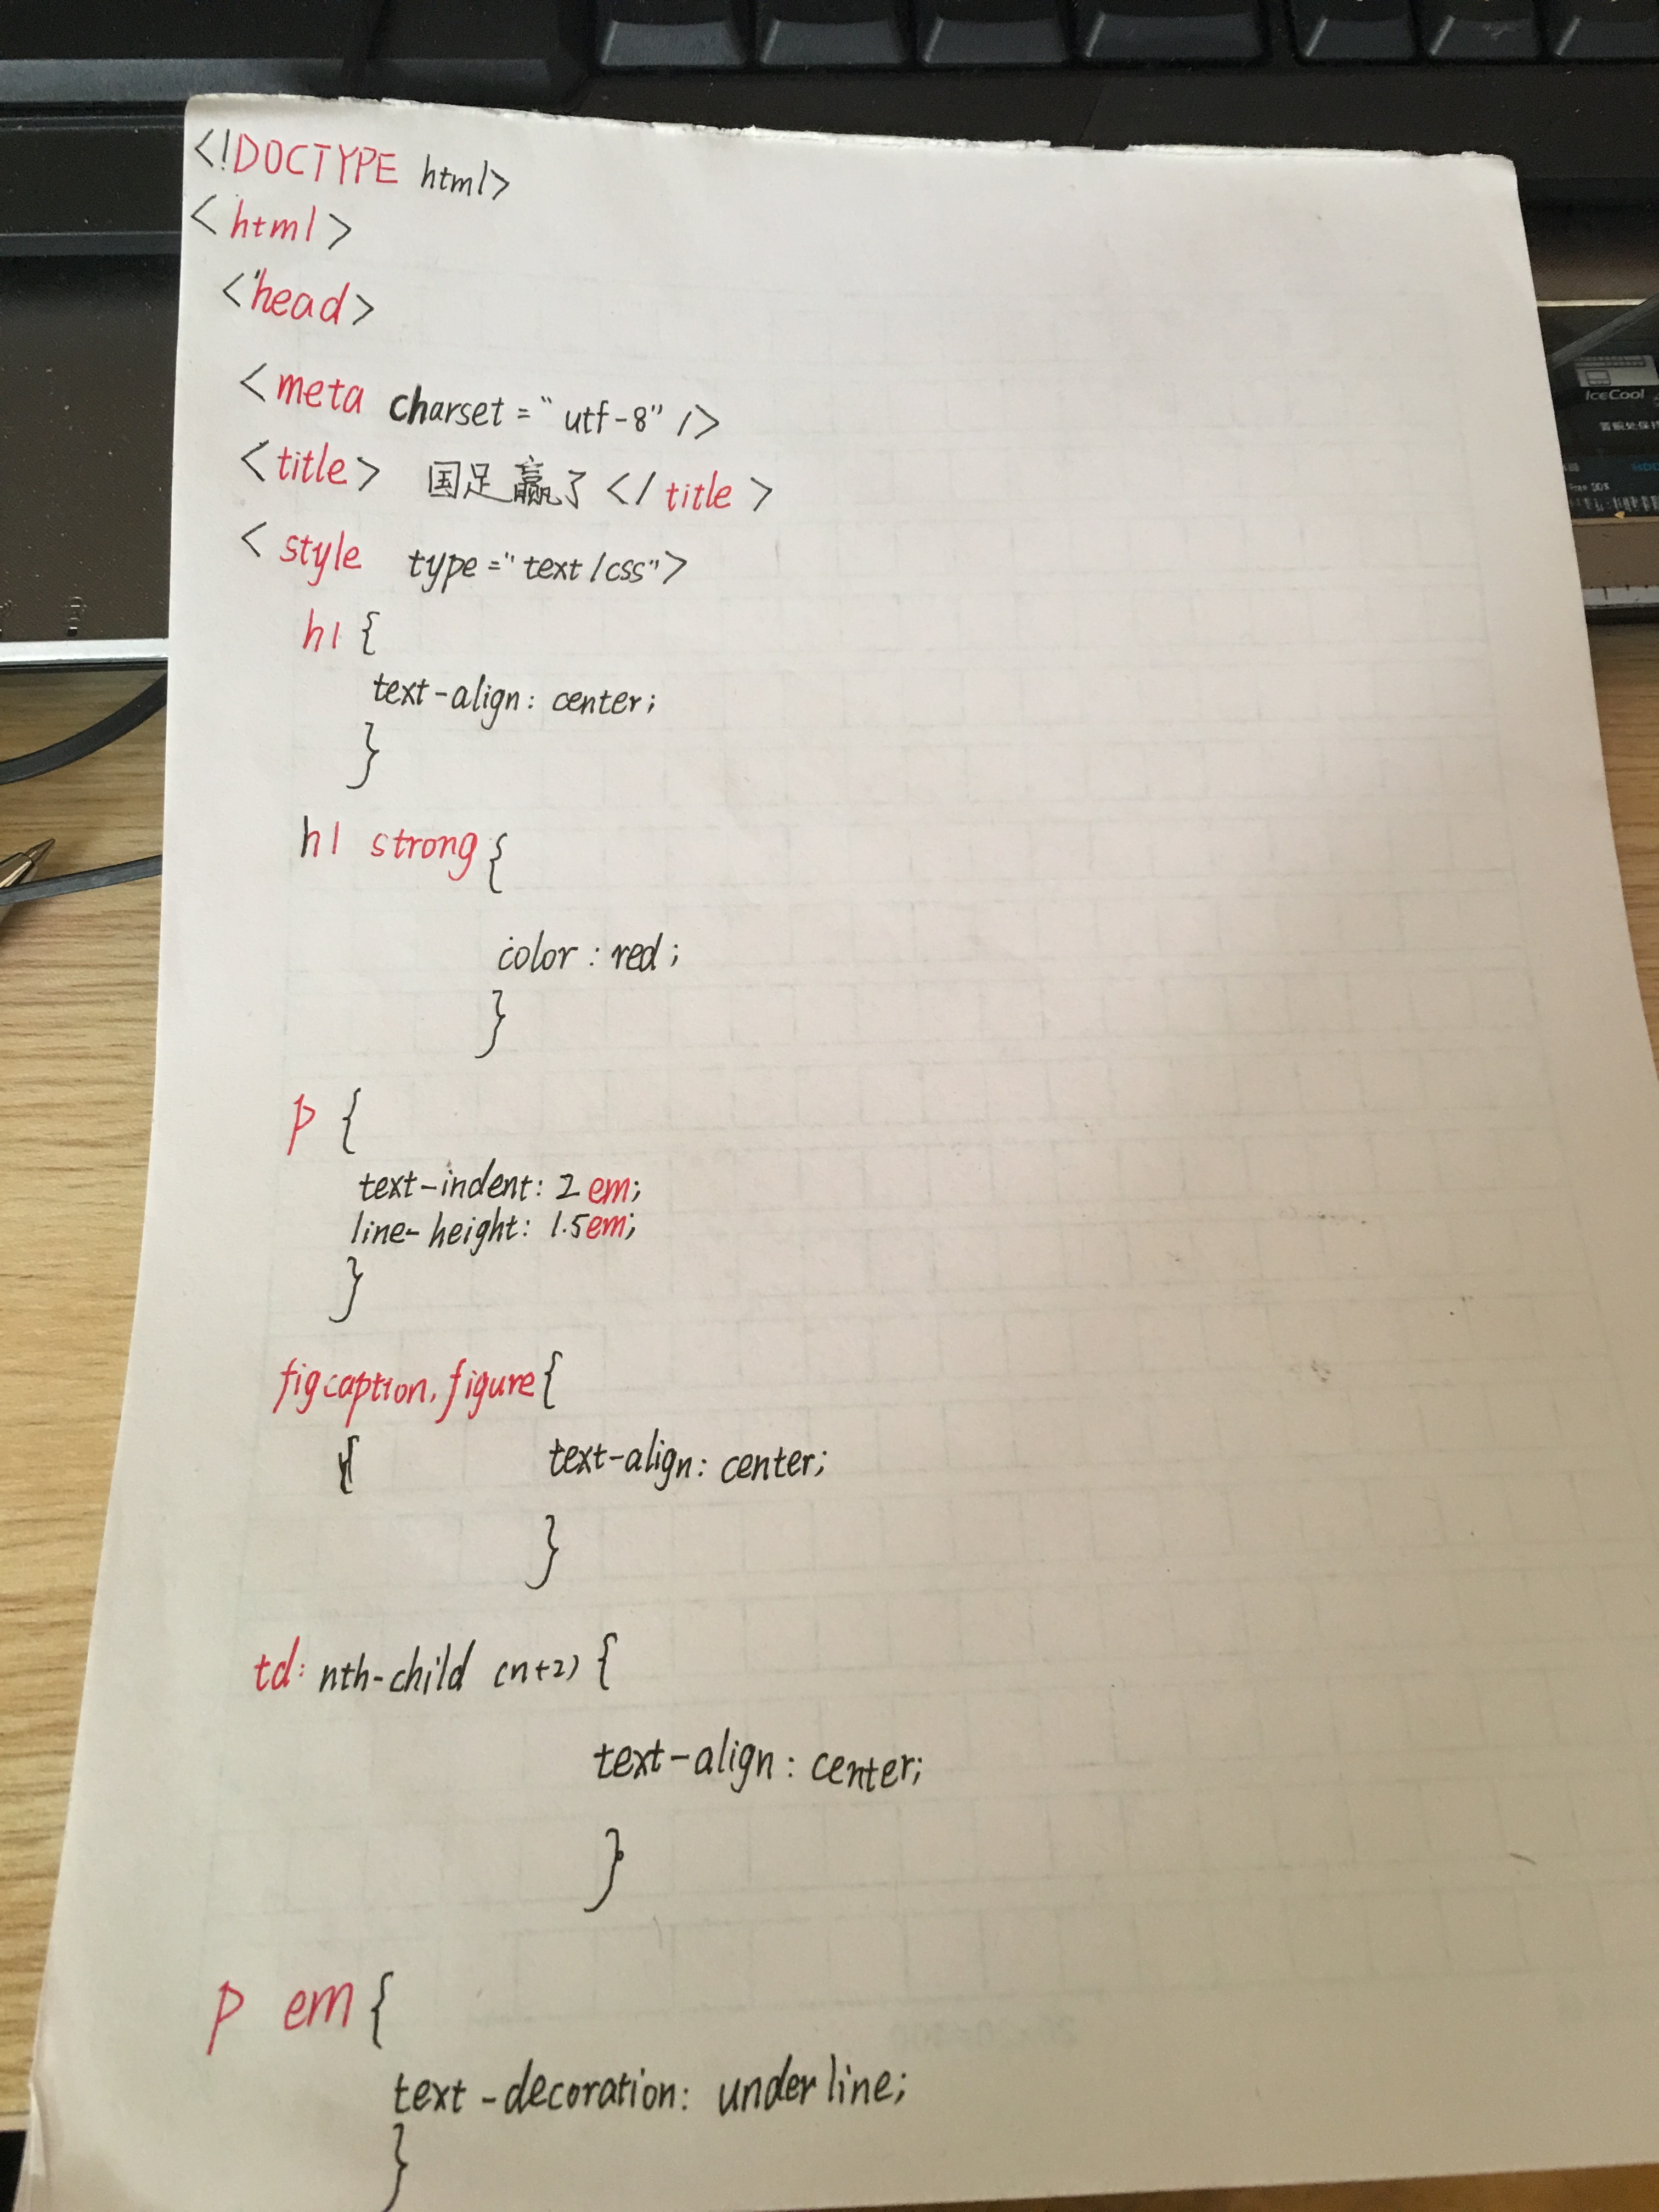 <!DOCTYPE html>
<html>
<head>
<meta charset="utf-8"/>
<title> 国足赢了</title>
<style type="text/css">
h1{
text-align: center;
}
h1 strong{
color: red;
}
p{
text-indent: 2em;
line-height: 1.5em;
}
figcaption, figure{
text-align: center;
}
td: nth-child (n+2) {
text-align: center;
}
p em{
text-decoration: underline;
}
IceCool